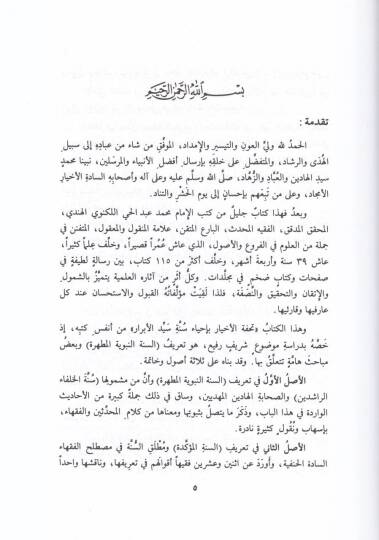 بسم الله الرحمن الرحيم
تقدمة :
الحمدُ لله وليِّ العونِ والتيسيرِ والإمداد، الموفِّقِ من شاء من عبادِهِ إلى سبيل
الهُدَى والرشاد، والمتفضِّلِ على خلقِهِ بإرسالِ أفضلِ الأنبياء والمرسَلين، نبينا محمدٍ
سيدِ الهادين والعُبَّادِ والزُّهاد، صلَّى الله وسلَّم عليه وعلى آله وأصحابِهِ السادةِ الأخيارِ
الأمجاد، وعلى من تَبِعَهم بإحسانٍ إلى يوم الحَشْرِ والتناد.
وبعدُ فهذا كتابٌ جليلٌ من كتب الإمام محمد عبد الحي اللكنوي الهندي،
المحقق المدقق، الفقيه المحدث، البارع المتقن، علامة المنقول والمعقول، المتفنن في
جملة من العلوم في الفروع والأصول، الذي عاش عُمُراً قصيراً، وخلَّف عِلماً كثيراً،
عاش ٣٩ سنة وأربعة أشهر، وخلَّف أكثرَ من ١١٥ كتاب، بين رسالةٍ لطيفةٍ في
صفحات وكتابٍ ضخمٍ في مجلَّدات. وكلُّ أثرٍ من آثاره العلمية يتميَّزُ بالشمولِ
والإتقانِ والتحقيقِ والنَّصَفَة، فلذا لَقِيَتْ مؤلَّفاتُه القبول والاستحسان عند كل
عارفيها وقارئيها.
وهذا الكتابُ «تحفة الأخيار بإحياء سُنَّةِ سَيِّدِ الأبرار» من أنفس كتبه، إذ
خَصَّهُ بدراسةِ موضوعٍ شريفٍ رفيع، هو تعريفُ (السنة النبوية المطهرة) وبعضُ
مباحثَ هامَّةٍ تتعلَّقُ بها. وقد بناه على ثلاثة أصول وخاتمة.
الأصلُ الأوَّلُ في تعريف (السنة النبوية المطهرة) وأنَّ من مشمولِها (سُنَّةَ الخلفاء
الراشدين) والصحابةِ الهادين المهديين، وساق في ذلك جملةً كبيرة من الأحاديث
الواردة في هذا الباب، وذَكَرَ ما يتصلُ بثبوتِها ومعناها من كلامِ المحدِّثين والفقهاء،
بإسهابٍ ونُقُولٍ كثيرةٍ نادرة.
الأصلُ الثاني في تعريفِ (السنةِ المؤكَّدة) ومُطْلَقِ السُّنَّة في مصطلح الفقهاء
السادة الحنفية، وأَورَدَ عن اثنين وعشرين فقيهاً أقوالَهم في تعريفِها، وناقشها واحداً
٥